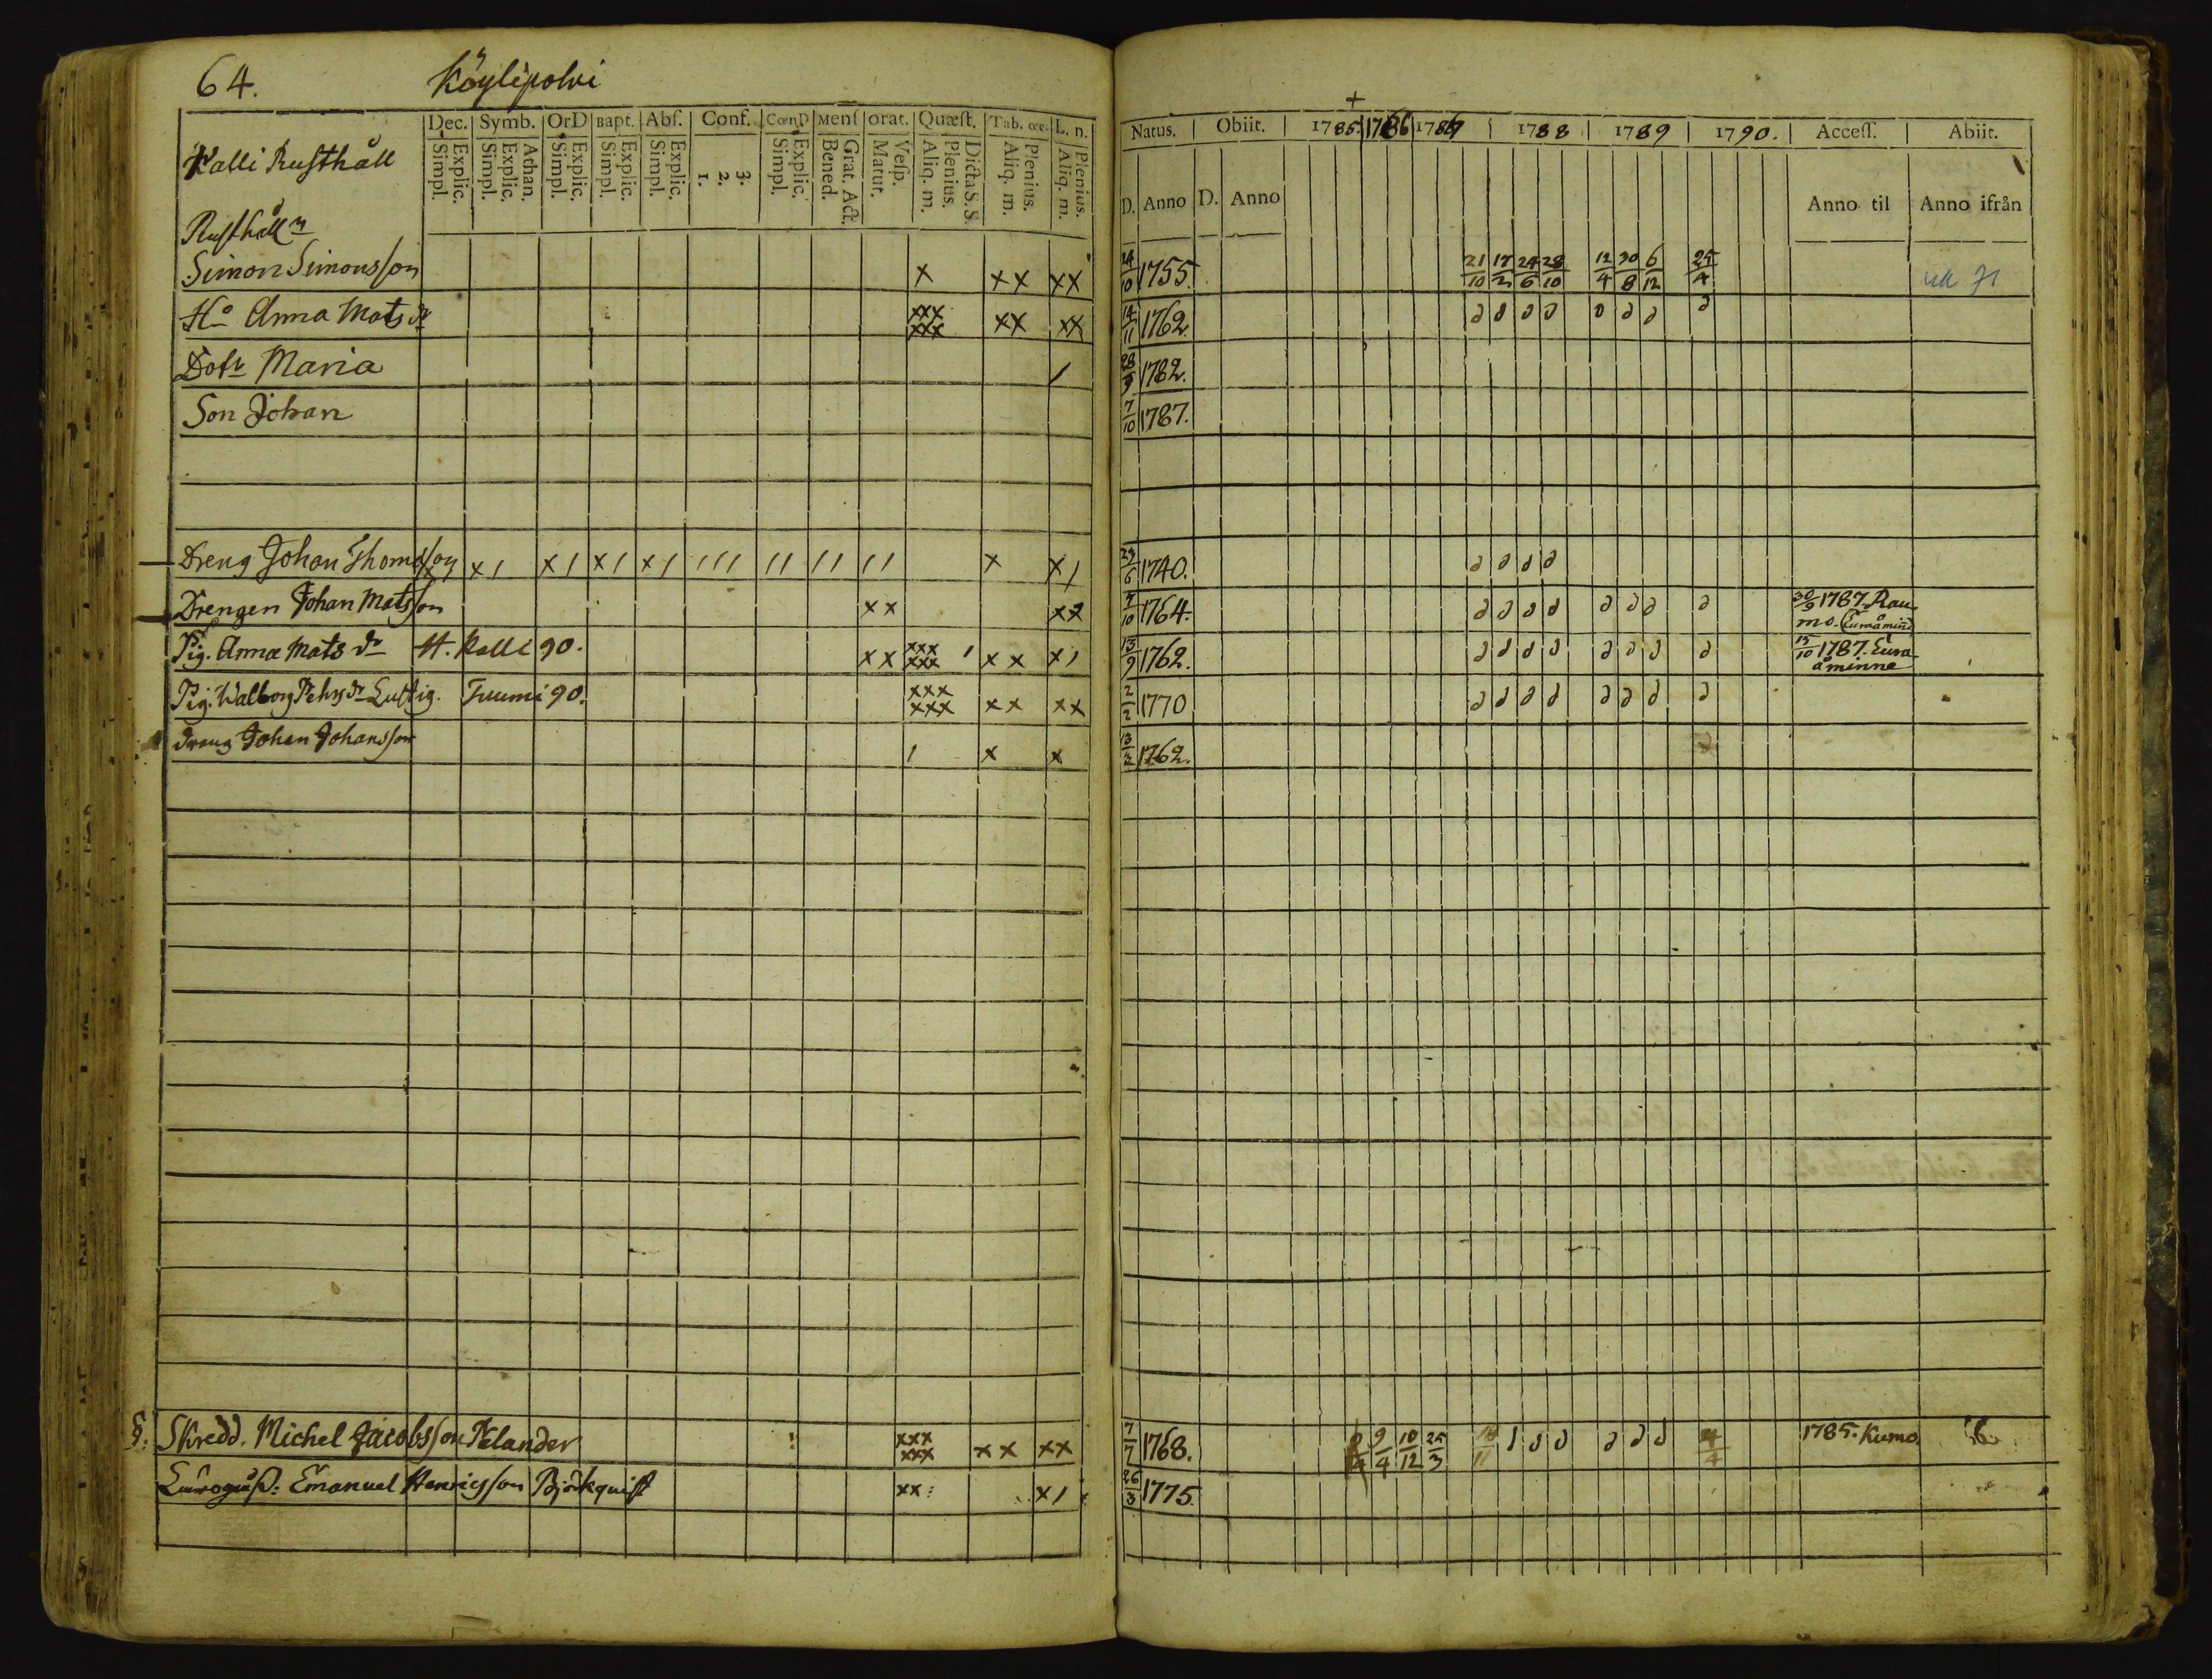 64. Köylipolvi
Dec. Symb. OrD Bapt. Abſ. Conf. CœnD Menſ orat. Quæſt. Tab. œc. L. n.
Simpl. Explic. Simpl. Explic. Athan. Simpl. Explic. Simpl. Explic. Simpl. Explic. 1. 2. 3. Simpl. Explic. Bened. Grat. Act. Matut. Veſp. Aliq. m. Plenius. Dicta S. S. Aliq. m. Plenius. Aliq. m. Plenius.
Kalli Rusthåll
Rusthålln
Simon Simonsson x xx xx
Ho Anna Matsdr xxx xxx xx xx
Dotr Maria /
Son Johan
Dreng Johan Thomasson x/ x/ x/ x/ /// // // // x x/
Drengen Johan Matsson xx xx
Pig. Anna Matsdr H. Kalli 90. xx xxx xxx / xx x/
Pig. Walborg Pehrsdr Lustig. Tuumi 90. xxx xxx xx xx
Dreng Johan Johansson / x x
Skredd. Michel Jacobsson Relander xxx xxx xx xx
Emanuel Henricsson Björkquist xx x/
Natus. Obiit. 1785 1786 1787 1788 1789 1790. Acceſſ. Abiit.
D. Anno D. Anno Anno til Anno ifrån
24/10 1755. 21/10 17/2 24/6 28/10 12/4 30/8 6/12 25/4
14/11 1762. d d d d d d d d
28/9 1782.
7/10 1787.
24/6 1740. d d d d
7/10 1764. d d d d d d d d 30/9 1787. Rau-
mo. Euraåmin
13/9 1762. d d d d d d d d 15/10 1787. Eura-
åminne
2/2 1770 d d d d d d d d
13/2 1762.
7/7 1768. 9/4 10/12 25/3 d d d d d d 1785. Kumo.
26/3 1775.